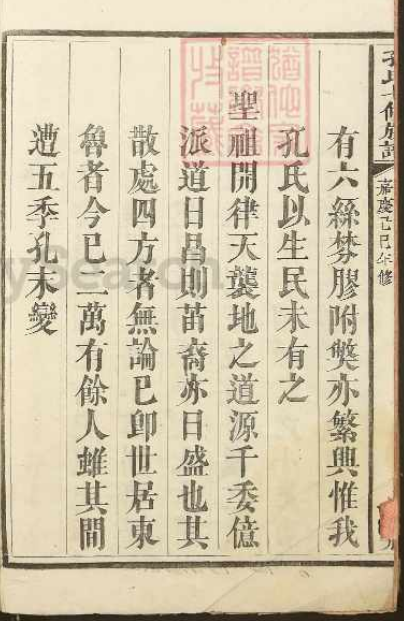 孔氏
族譜
嘉慶己巳年修
有六絲棼膠附獘亦繁興惟我
孔氏以生民未有之
聖祖開律天襲地之道源千委億
派道日昌則苗裔亦日盛也其
散處四方者無論已卽世居東
魯者今已二萬有餘人雖其間
遭五季孔末變